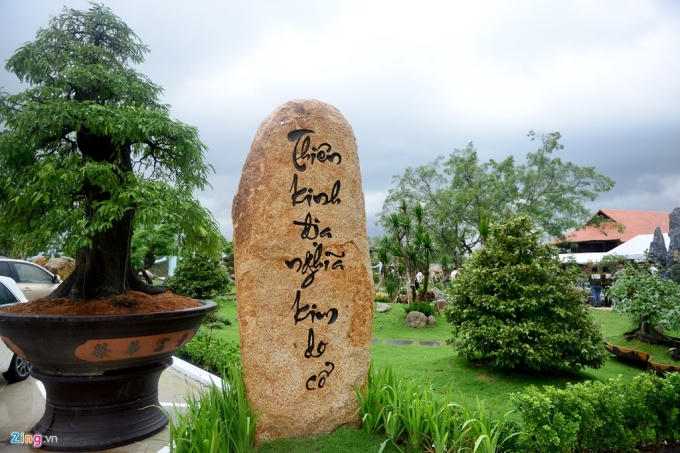 Thiên
kinh
địa
nghĩa
kim
do
cổ
Zing.vn